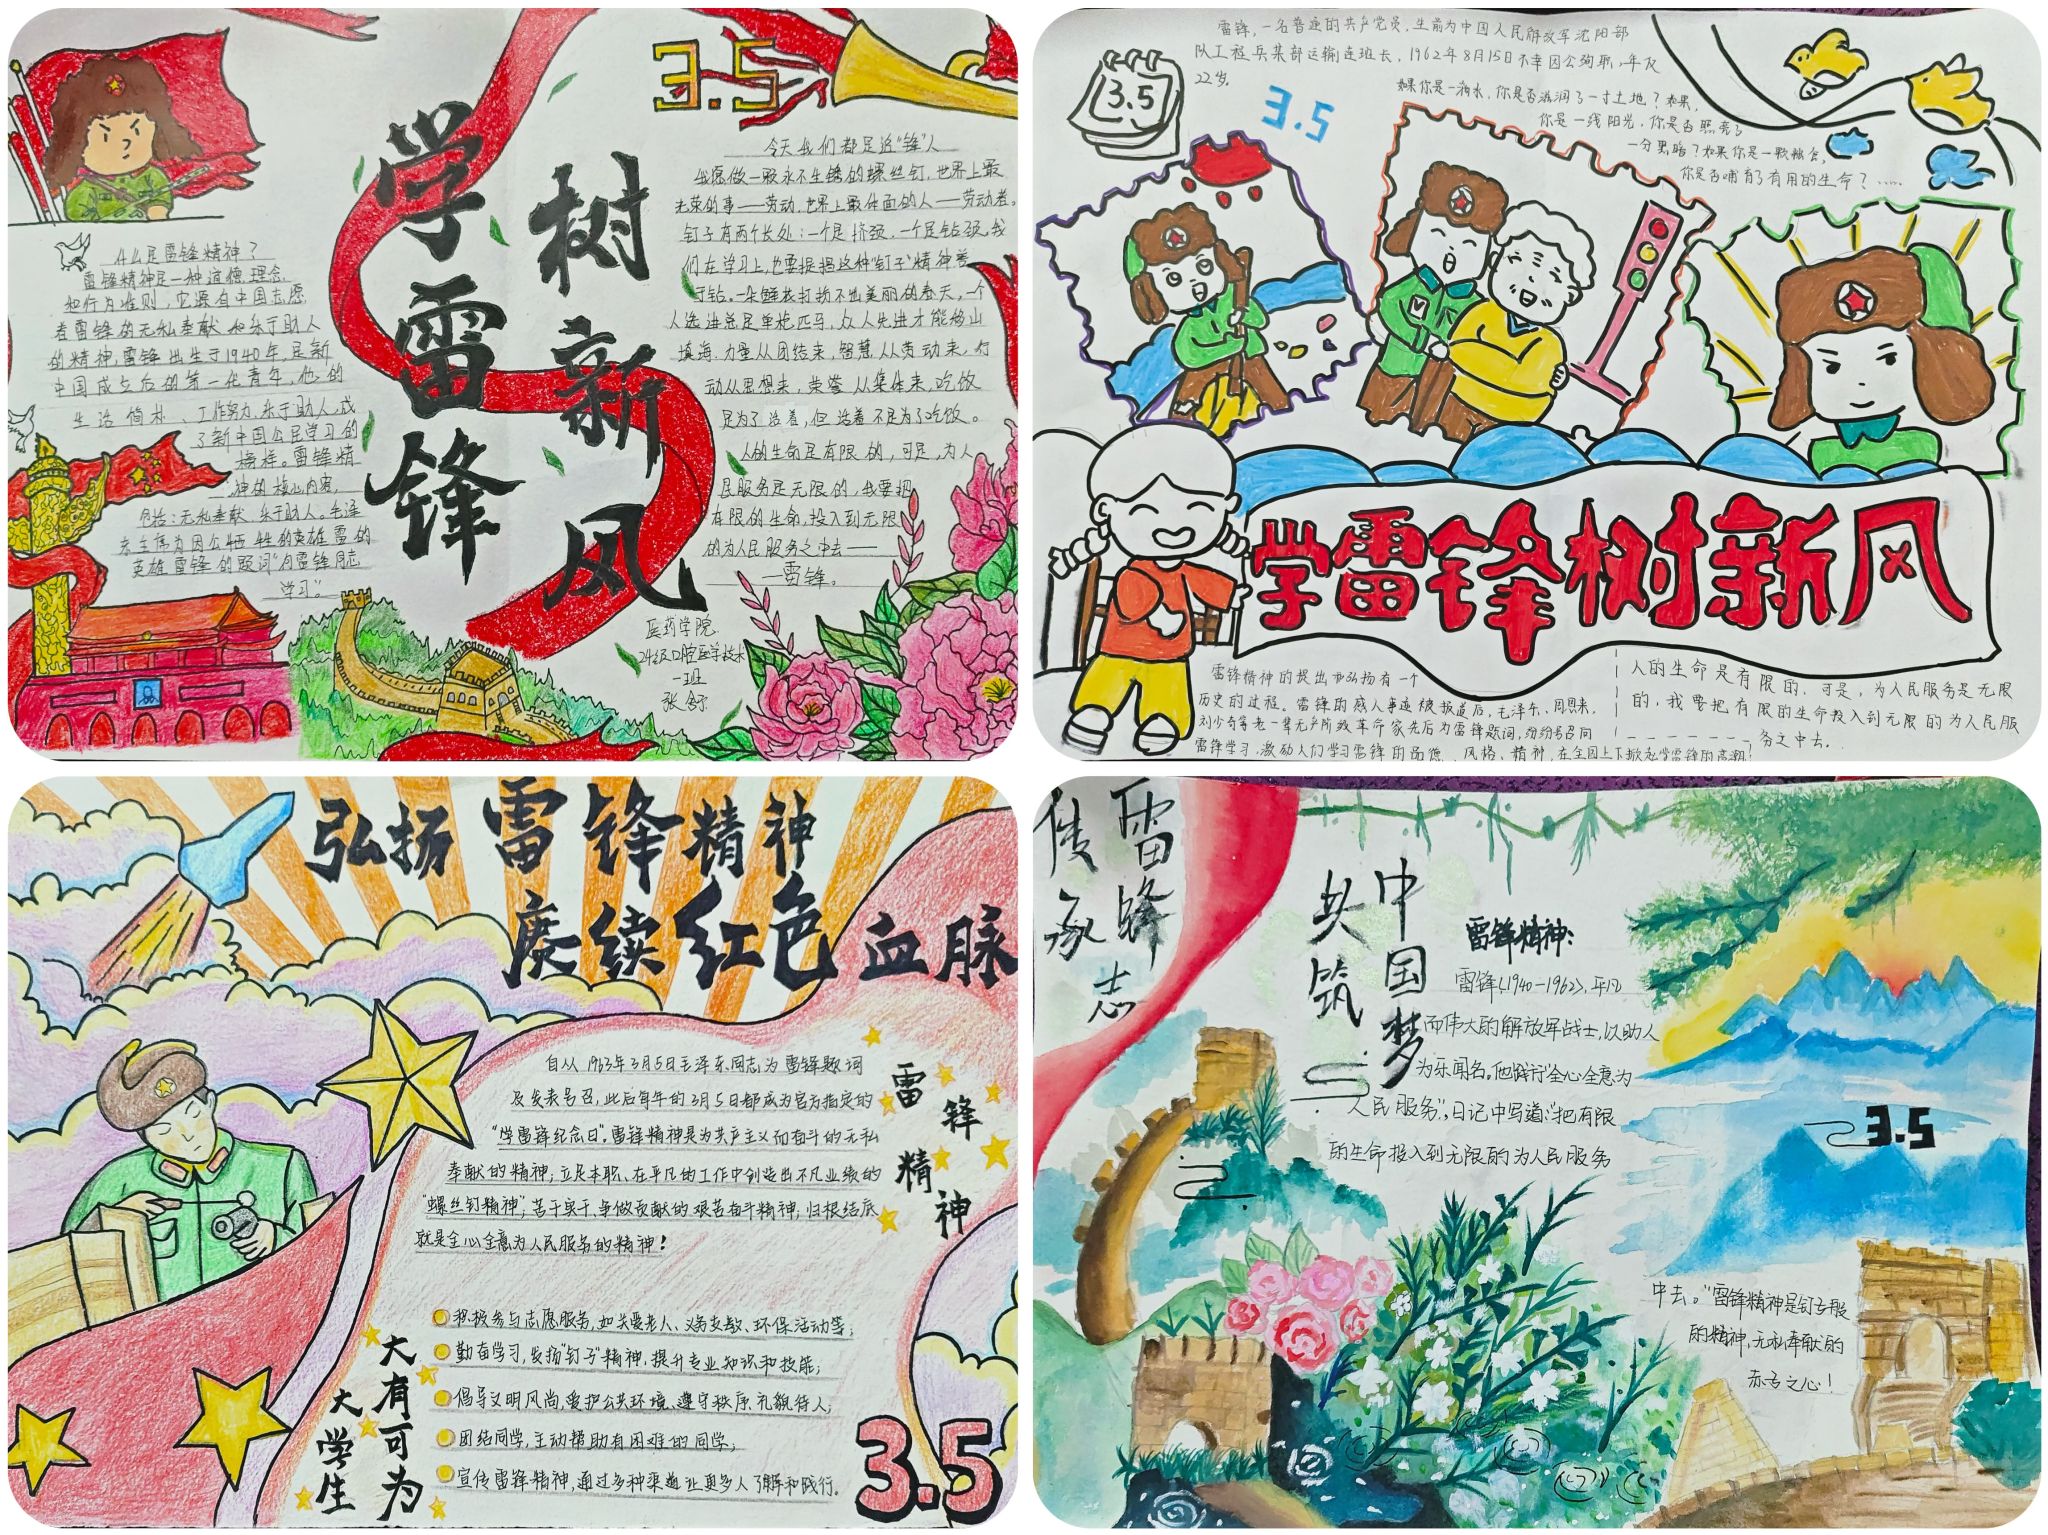 学雷锋
树新风
3.5
什么是雷锋精神？
雷锋精神是一种道德理念
和行为准则，它源自中国志愿
者雷锋的无私奉献和乐于助人
的精神，雷锋出生于1940年，是新
中国成立后的第一代青年，他的
生活简朴、工作努力，乐于助人，成
了新中国公民学习的
榜样。雷锋精
神的核心内容，
包括：无私奉献、乐于助人。毛泽
东主席为因公牺牲的英雄雷的
英雄雷锋的题词“向雷锋同志
学习”。
今天我们都是追“锋”人
我愿做一颗永不生锈的螺丝钉，世界上最
光荣的事——劳动，世界上最体面的人——劳动者。
钉子有两个长处：一个是挤劲，一个是钻劲，我
们在学习上，也要提倡这种“钉子”精神善
于钻，一朵鲜花打扮不出美丽的春天，一个
人先进总是单枪匹马，众人先进才能移山
填海，力量从团结来，智慧从劳动来，行
动从思想来，荣誉从集体来，吃饭
是为了活着，但活着不是为了吃饭。
人的生命是有限的，可是，为人
民服务是无限的，我要把
有限的生命，投入到无限
的为人民服务之中去——
—雷锋。
医药学院
24级口腔医学技术
一班
雷锋，一名普通的共产党员，生前为中国人民解放军沈阳部
队工程兵某部运输连班长，1962年8月15日不幸因公殉职，年仅
22岁。
3.5
3.5
如果你是一滴水，你是否滋润了一寸土地？如果，
你是一线阳光，你是否照亮了
一分黑暗？如果你是一颗粮食，
你是否哺育了有用的生命？……
学雷锋树新风
雷锋精神的提出和弘扬有一个
历史的过程。雷锋的感人事迹被报道后，毛泽东、周恩来，
刘少奇等老一辈无产阶级革命家先后为雷锋题词，纷纷号召向
雷锋学习，激励人们学习雷锋的品德、风格、精神，在全国上下掀起学雷锋的高潮！
人的生命是有限的，可是，为人民服务是无限
的，我要把有限的生命投入到无限的为人民服
务之中去.
弘扬雷锋精神
赓续红色血脉
自从1963年3月5日毛泽东同志为雷锋题词
及发表号召，此后每年的3月5日都成为官方指定的
“学雷锋纪念日”。雷锋精神是为共产主义而奋斗的无私
奉献的精神；立足本职、在平凡的工作中创造出不凡业绩的
“螺丝钉精神”；苦干实干、争做贡献的艰苦奋斗精神，归根结底
就是全心全意为人民服务的精神！
雷锋精神
积极参与志愿服务，如关爱老人、义务支教、环保活动等；
勤奋学习，发扬“钉子”精神，提升专业知识和技能；
倡导文明风尚，爱护公共环境、遵守秩序、礼貌待人；
团结同学，主动帮助有困难的同学；
宣传雷锋精神，通过多种渠道让更多人了解和践行。
大学生
大有可为
3.5
传承
雷锋志
共筑
中国梦
雷锋精神：
雷锋（1940—1962），平凡
而伟大的解放军战士，以助人
为乐闻名。他践行“全心全意为
人民服务”，日记中写道：“把有限
的生命投入到无限的为人民服务
3.5
中去。”雷锋精神是钉子般
的精神，无私奉献的
赤子之心！